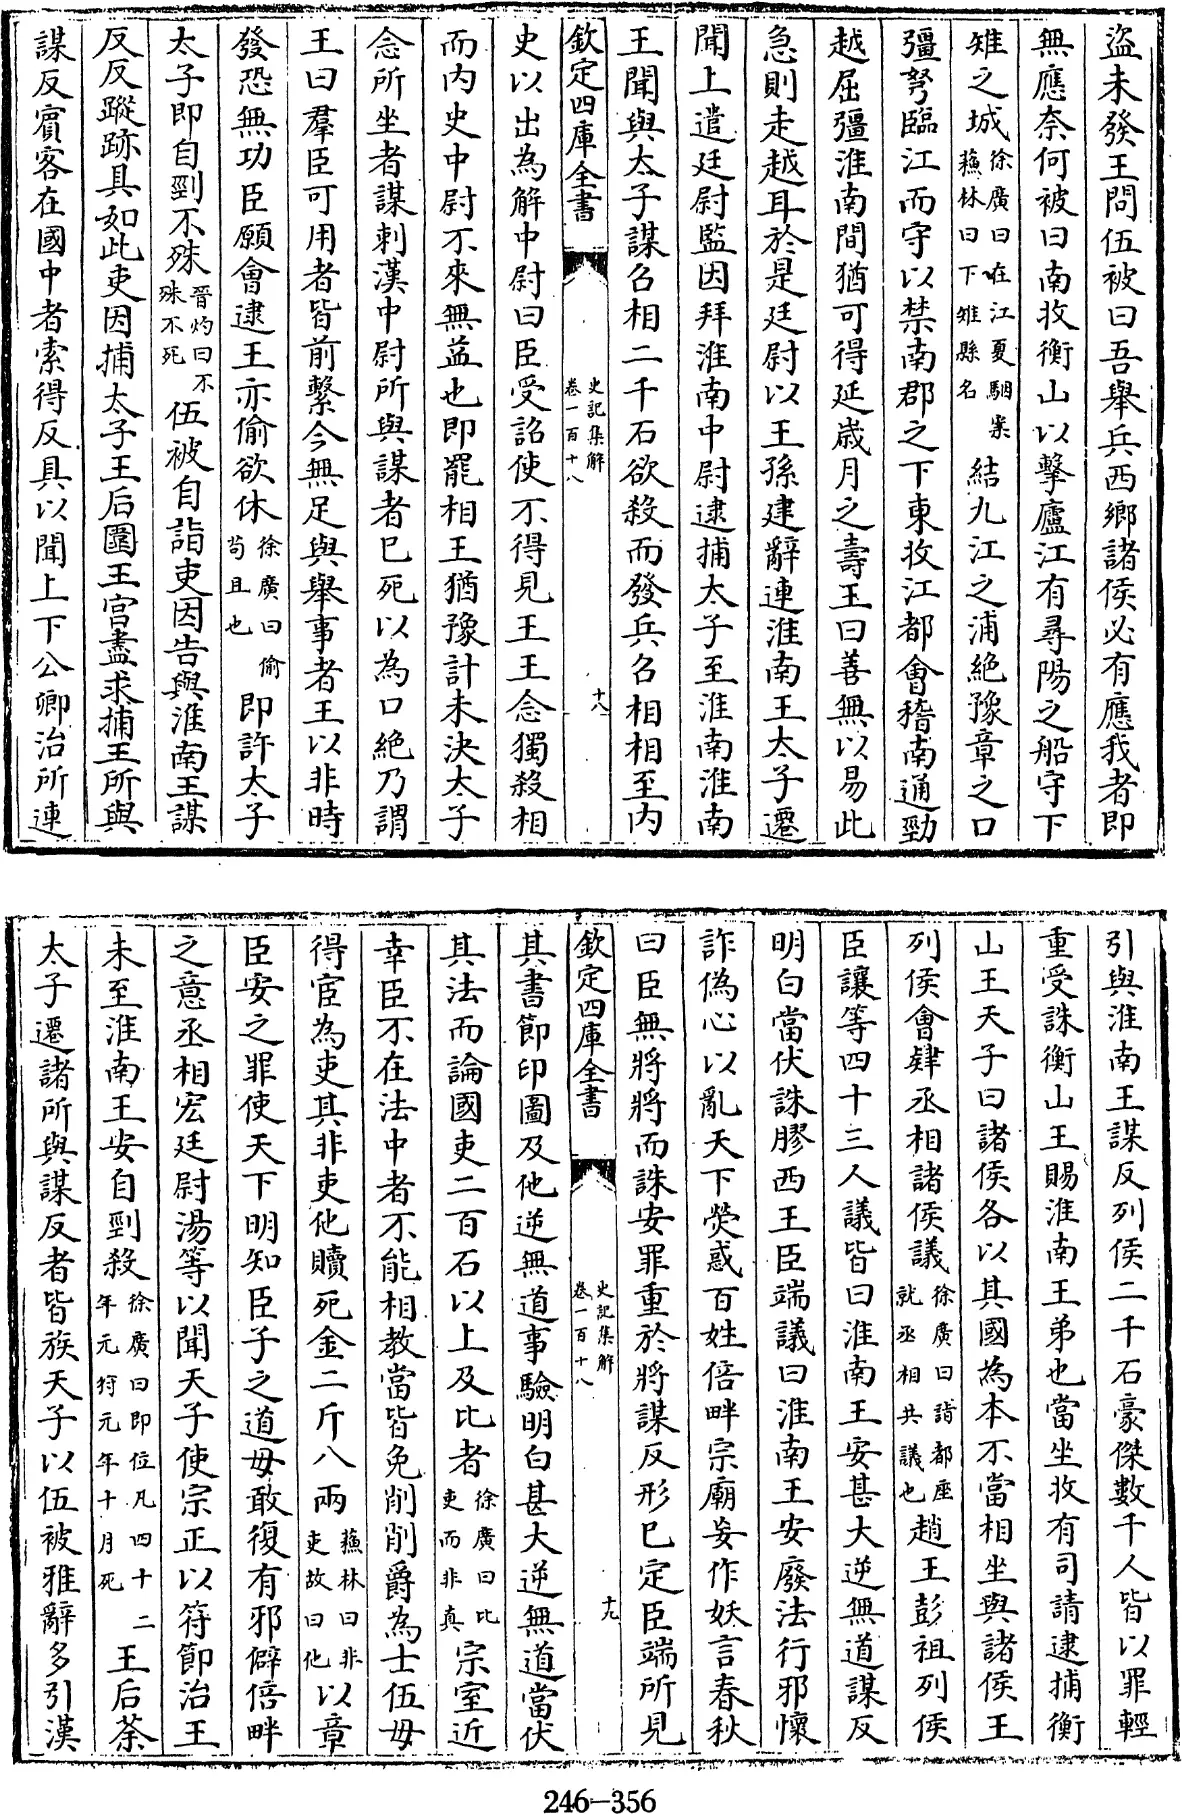 盜未發王問伍被曰吾舉兵西鄉諸侯必有應我者即
無應奈何被曰南收衡山以擊廬江有尋陽之船守下
雉之城徐廣曰在江夏駰案蘇林曰下雉縣名結九江之浦絶豫章之口
彊弩臨江而守以禁南郡之下東收江都會稽南通勁
越屈彊淮南間猶可得延歲月之壽王曰善無以易此
急則走越耳於是廷尉以王孫建辭連淮南王太子遷
聞上遣廷尉監因拜淮南中尉逮捕太子至淮南淮南
王聞與太子謀召相二千石欲殺而發兵召相相至内
欽定四庫全書
史記集解
卷一百十八
十八
史以出為解中尉曰臣受詔使不得見王王念獨殺相
而内史中尉不來無益也即罷相王猶豫計未決太子
念所坐者謀刺漢中尉所與謀者已死以為口絶乃謂
王曰羣臣可用者皆前繫今無足與舉事者王以非時
發恐無功臣願會逮王亦偷欲休徐廣曰偷苟且也即許太子
太子即自剄不殊晉灼曰不殊不死伍被自詣吏因告與淮南王謀
反反蹤跡具如此吏因捕太子王后圍王宫盡求捕王所與
謀反賓客在國中者索得反具以聞上下公卿治所連
引與淮南王謀反列侯二千石豪傑數千人皆以罪輕
重受誅衡山王賜淮南王弟也當坐收有司請逮捕衡
山王天子曰諸侯各以其國為本不當相坐與諸侯王
列侯會肄丞相諸侯議徐廣曰詣都座就丞相共議也趙王彭祖列侯
臣讓等四十三人議皆曰淮南王安甚大逆無道謀反
明白當伏誅膠西王臣端議曰淮南王安廢法行邪懷
詐僞心以亂天下熒惑百姓倍畔宗廟妄作妖言春秋
曰臣無將將而誅安罪重於將謀反形已定臣端所見
欽定四庫全書
史記集解
卷一百十八
十九
其書節印圖及他逆無道事驗明白甚大逆無道當伏
其法而論國吏二百石以上及比者徐廣曰比吏而非真宗室近
幸臣不在法中者不能相教當皆免削削爵為士伍毋
得宦為吏其非吏他贖死金二斤八兩蘇林曰非吏故曰他以章
臣安之罪使天下明知臣子之道毋敢復有邪僻倍畔
之意丞相宏廷尉湯等以聞天子使宗正以符節治王
未至淮南王安自剄殺徐廣曰即位凡四十二年元狩元年十月死王后荼
太子遷諸所與謀反者皆族天子以伍被雅辭多引漢
246-356